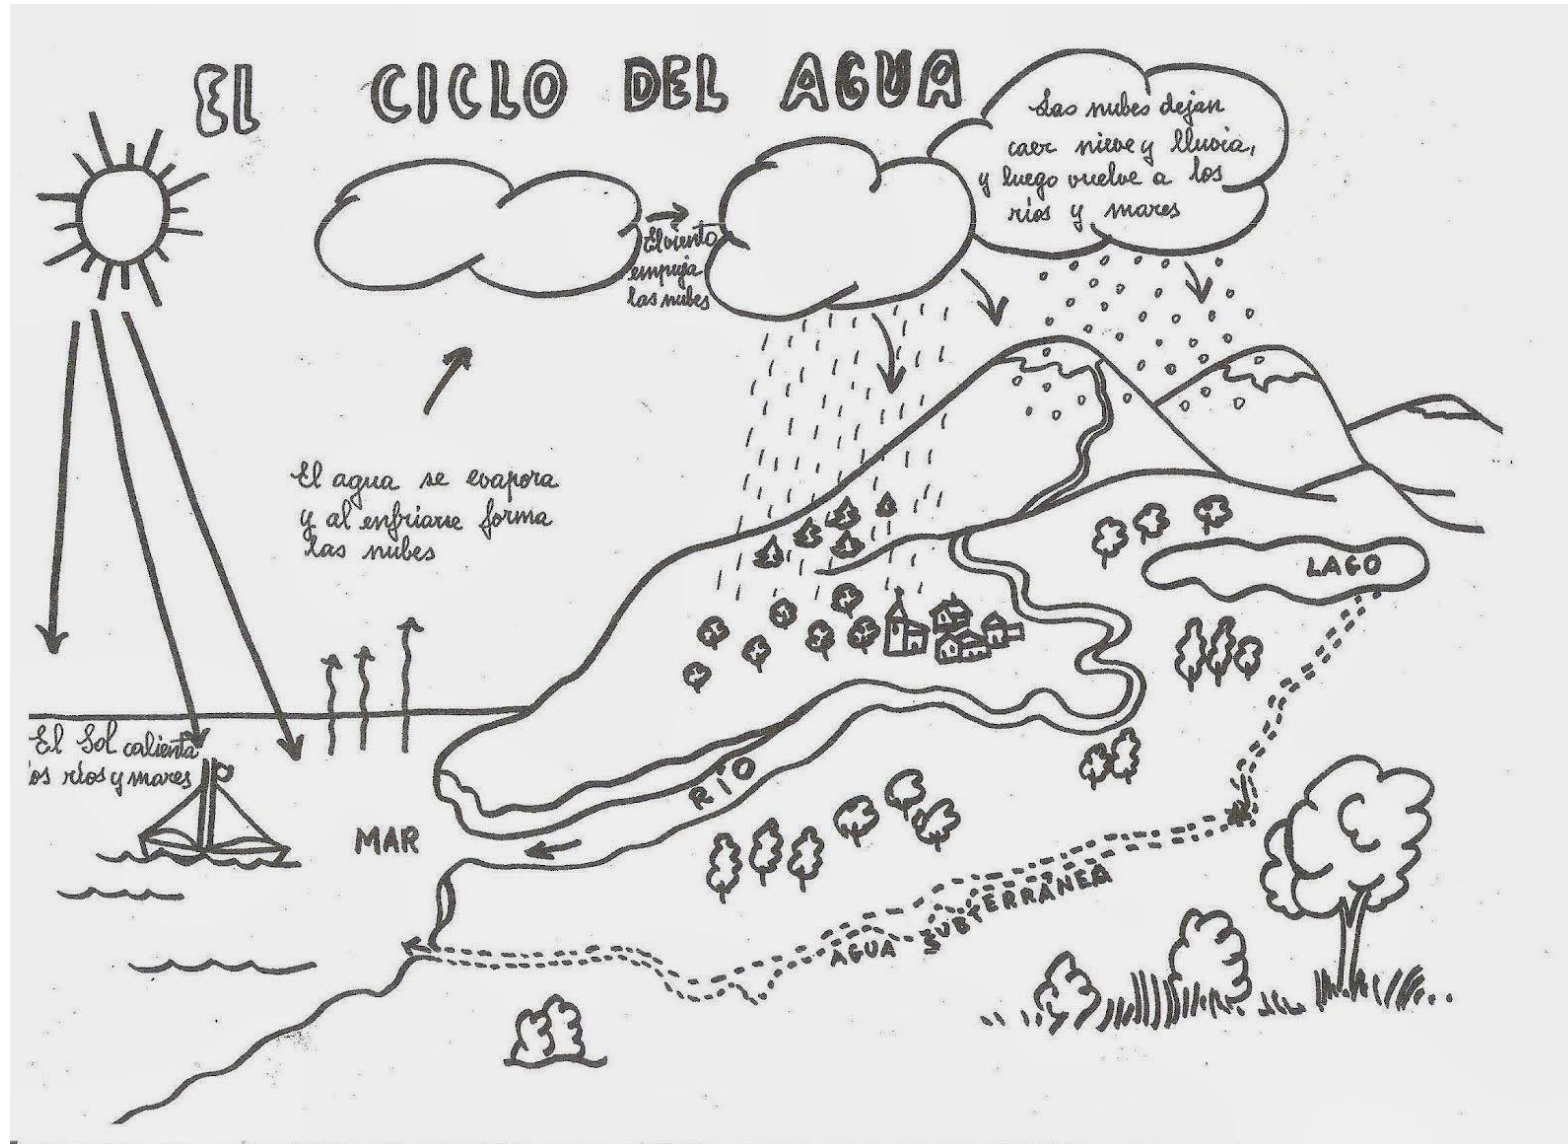 EL CICLO DEL AGUA
Las nubes dejan
caer nieve y lluvia,
y luego vuelve a los
ríos y mares
El viento
empuja
las nubes
El agua se evapora
y al enfriarse forma
las nubes
LAGO
El Sol calienta
os ríos y mares
RÍO
MAR
AGUA SUBTERRÁNEA